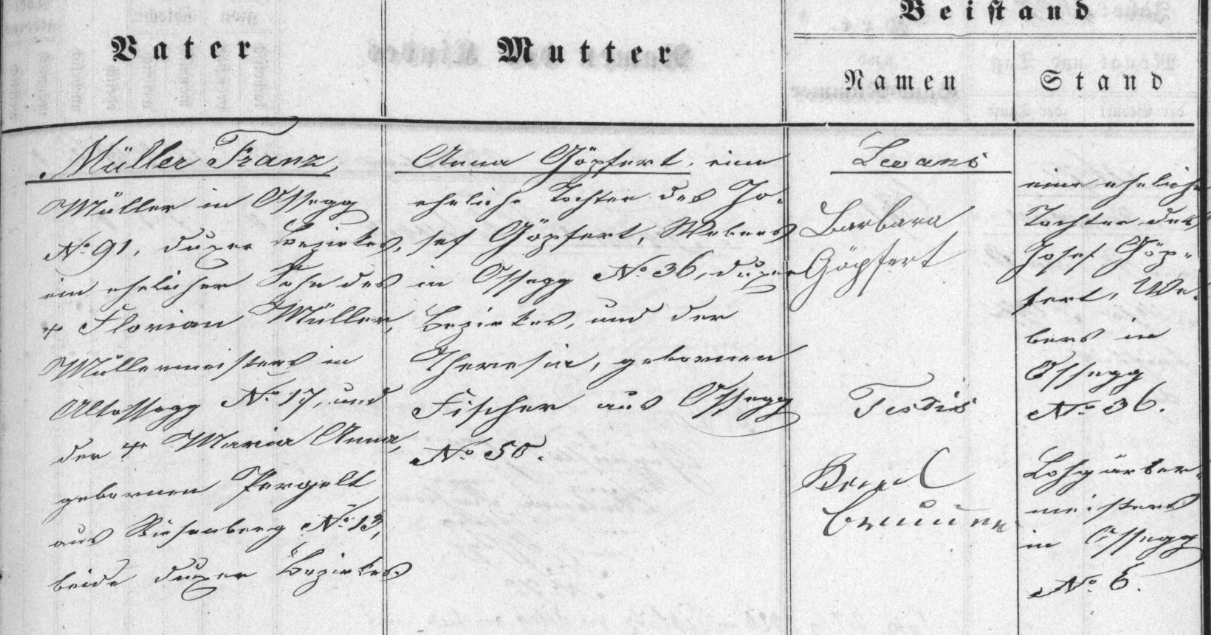 Vater
Mutter
Beistand
Namen
Stand
Müller Franz,
Müller in Ossegg
No. 91, Duxer Bezirkes,
ein ehelicher Sohn des
† Florian Müller,
Müllermeisters in
Altossegg No. 17, und
der † Maria Anna,
gebornen Pergelt
aus Riesenberg No. 13,
beide Duxer Bezirkes
Anna Göpfert, eine
eheliche Tochter des Jo-
sef Göpfert, Webers
in Ossegg No. 36, Duxer
Bezirkes, und der
Theresia, gebornen
Fischer aus Ossegg
No. 50.
Levans
Barbara
Göpfert
Testis
eine eheliche
Tochter des
Josef Göp-
fert, We-
bers in
Ossegg
No. 36.
Lohgärber-
meisters
in Ossegg
No. 6.